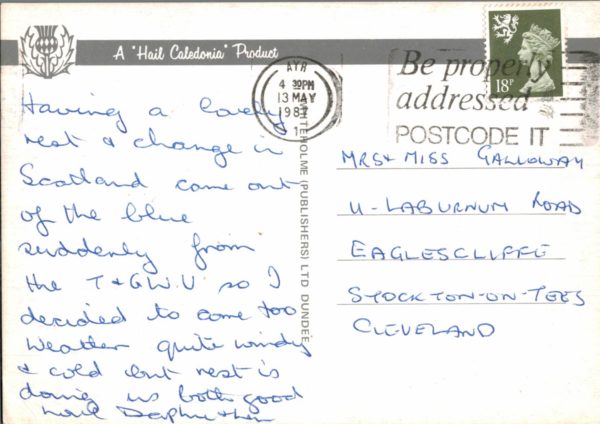 A "Hail Caledonia" Product
AYR
4 30PM
13 MAY
198
Be properly
addressed
POSTCODE IT
18P
WHITEHOLME (PUBLISHERS) LTD DUNDEE
Having a lovely
rest & change in
Scotland came out
of the blue
suddenly from
the T&GW.U so I
decided to come too
Weather quite windy
& cold but rest is
doing us both good
Daphne &
MRS & MISS GALLOWAY
LABURNUM ROAD
EAGLESCLIFFE
STOCKTON-ON-TEES
CLEVELAND